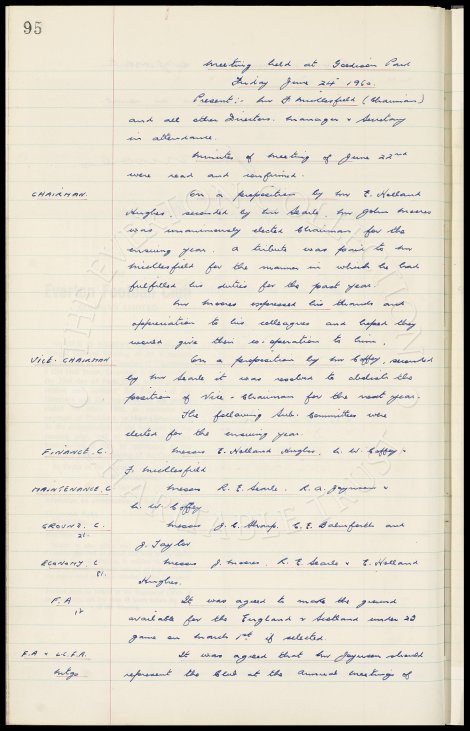 95
Meeting held at Goodison Park
Friday June 24th 1960.
Present:- Mr F Micklesfield (Chairman)
and all other Directors. Manager & Secretary
in attendance.
Minutes of Meeting of June 22nd
were read and confirmed.
CHAIRMAN. On a proposition by Mr E. Holland
Hughes, seconded by Mr Searle, Mr John Moores
was unanimously elected Chairman for the
ensuing year. A tribute was paid to Mr
Micklesfield for the manner in which he had
fulfilled his duties for the past year.
Mr Moores expressed his thanks and
appreciation to his colleagues and hoped they
would give their co-operation to him.
VICE-CHAIRMAN On a proposition by Mr Coffey, seconded
by Mr Searle it was resolved to abolish the
position of Vice-Chairman for the next year.
The following Sub. Committees were
elected for the ensuing year.
FINANCE. C. Messrs E. Holland Hughes, C. W. Coffey &
F. Micklesfield
MAINTENANCE. C Messrs R. E. Searle. R. A. Joynson &
C. W. Coffey
GROUND. C. Messrs J. C. Sharp, C. E. Balmforth and
J. Taylor
ECONOMY. C Messrs J. Moores. R. E. Searle & E. Holland
Hughes.
F.A It was agreed to make the ground
available for the England v Scotland under 23
game on March 1st if selected.
F.A & L.C.F.A. It was agreed that Mr Joynson should
Mtgs represent the Club at the annual meetings of